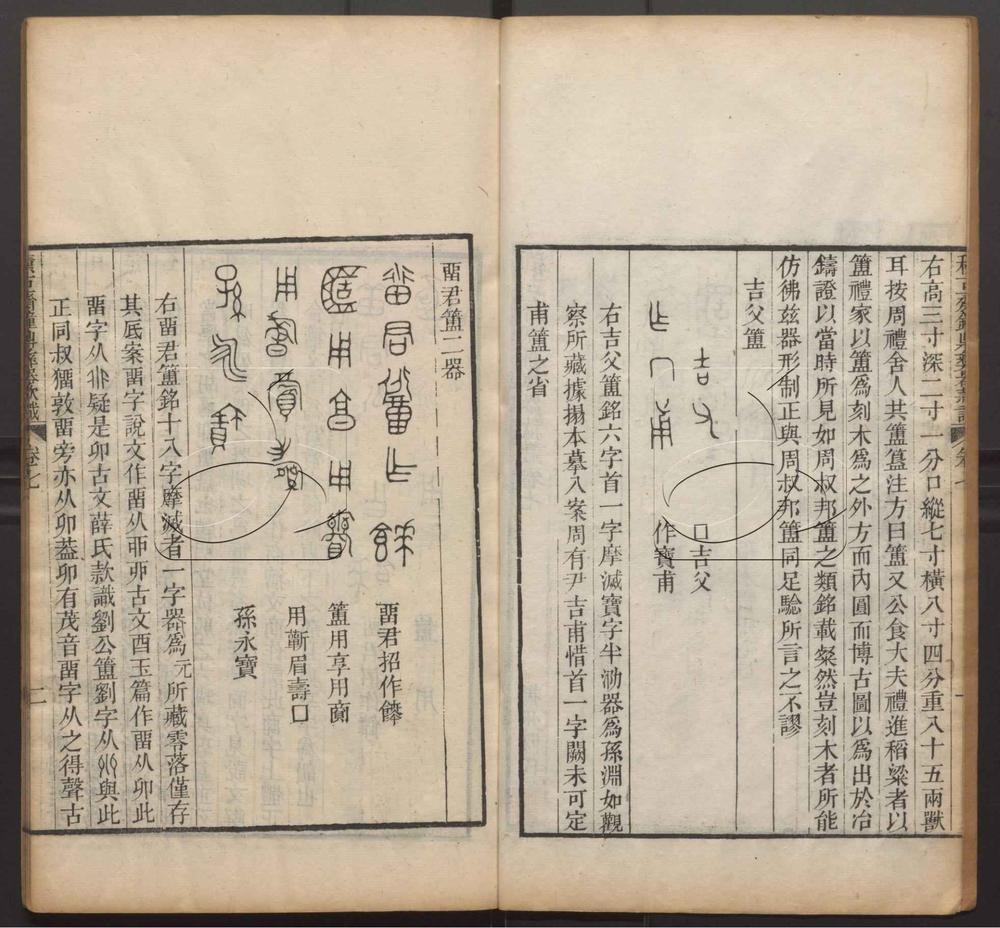 右高三寸深二寸一分口縱七寸橫八寸四分重八十五兩獸
耳按周禮舍人共簠簋注方曰簠又公食大夫禮進稻粱者以
簠禮家以簠爲刻木爲之外方而內圓而博古圖以爲出於冶
鑄證以當時所見如周叔邦簠之類銘載粲然豈刻木者所能
仿彿茲器形制正與周叔邦簠同足驗所言之不謬
吉父簠
口吉父
作寶甫
右吉父簠銘六字首一字摩滅寶字半泐器爲孫淵如觀
察所藏據搨本摹入案周有尹吉甫惜首一字闕未可定
甫簠之省
畱君簠二器
畱君招作餴
簠用享用䵼
用蘄眉壽口
孫永寶
右畱君簠銘十八字摩滅者一字器爲元所藏零落僅存
其底案畱字說文作畱从丣丣古文酉玉篇作畱从卯此
畱字从疑是卯古文薛氏款識劉公簠劉字从與此
正同叔㺇敦畱旁亦从卯葢卯有茂音畱字从之得聲古
積古齋鐘鼎彝器款識
卷七
二